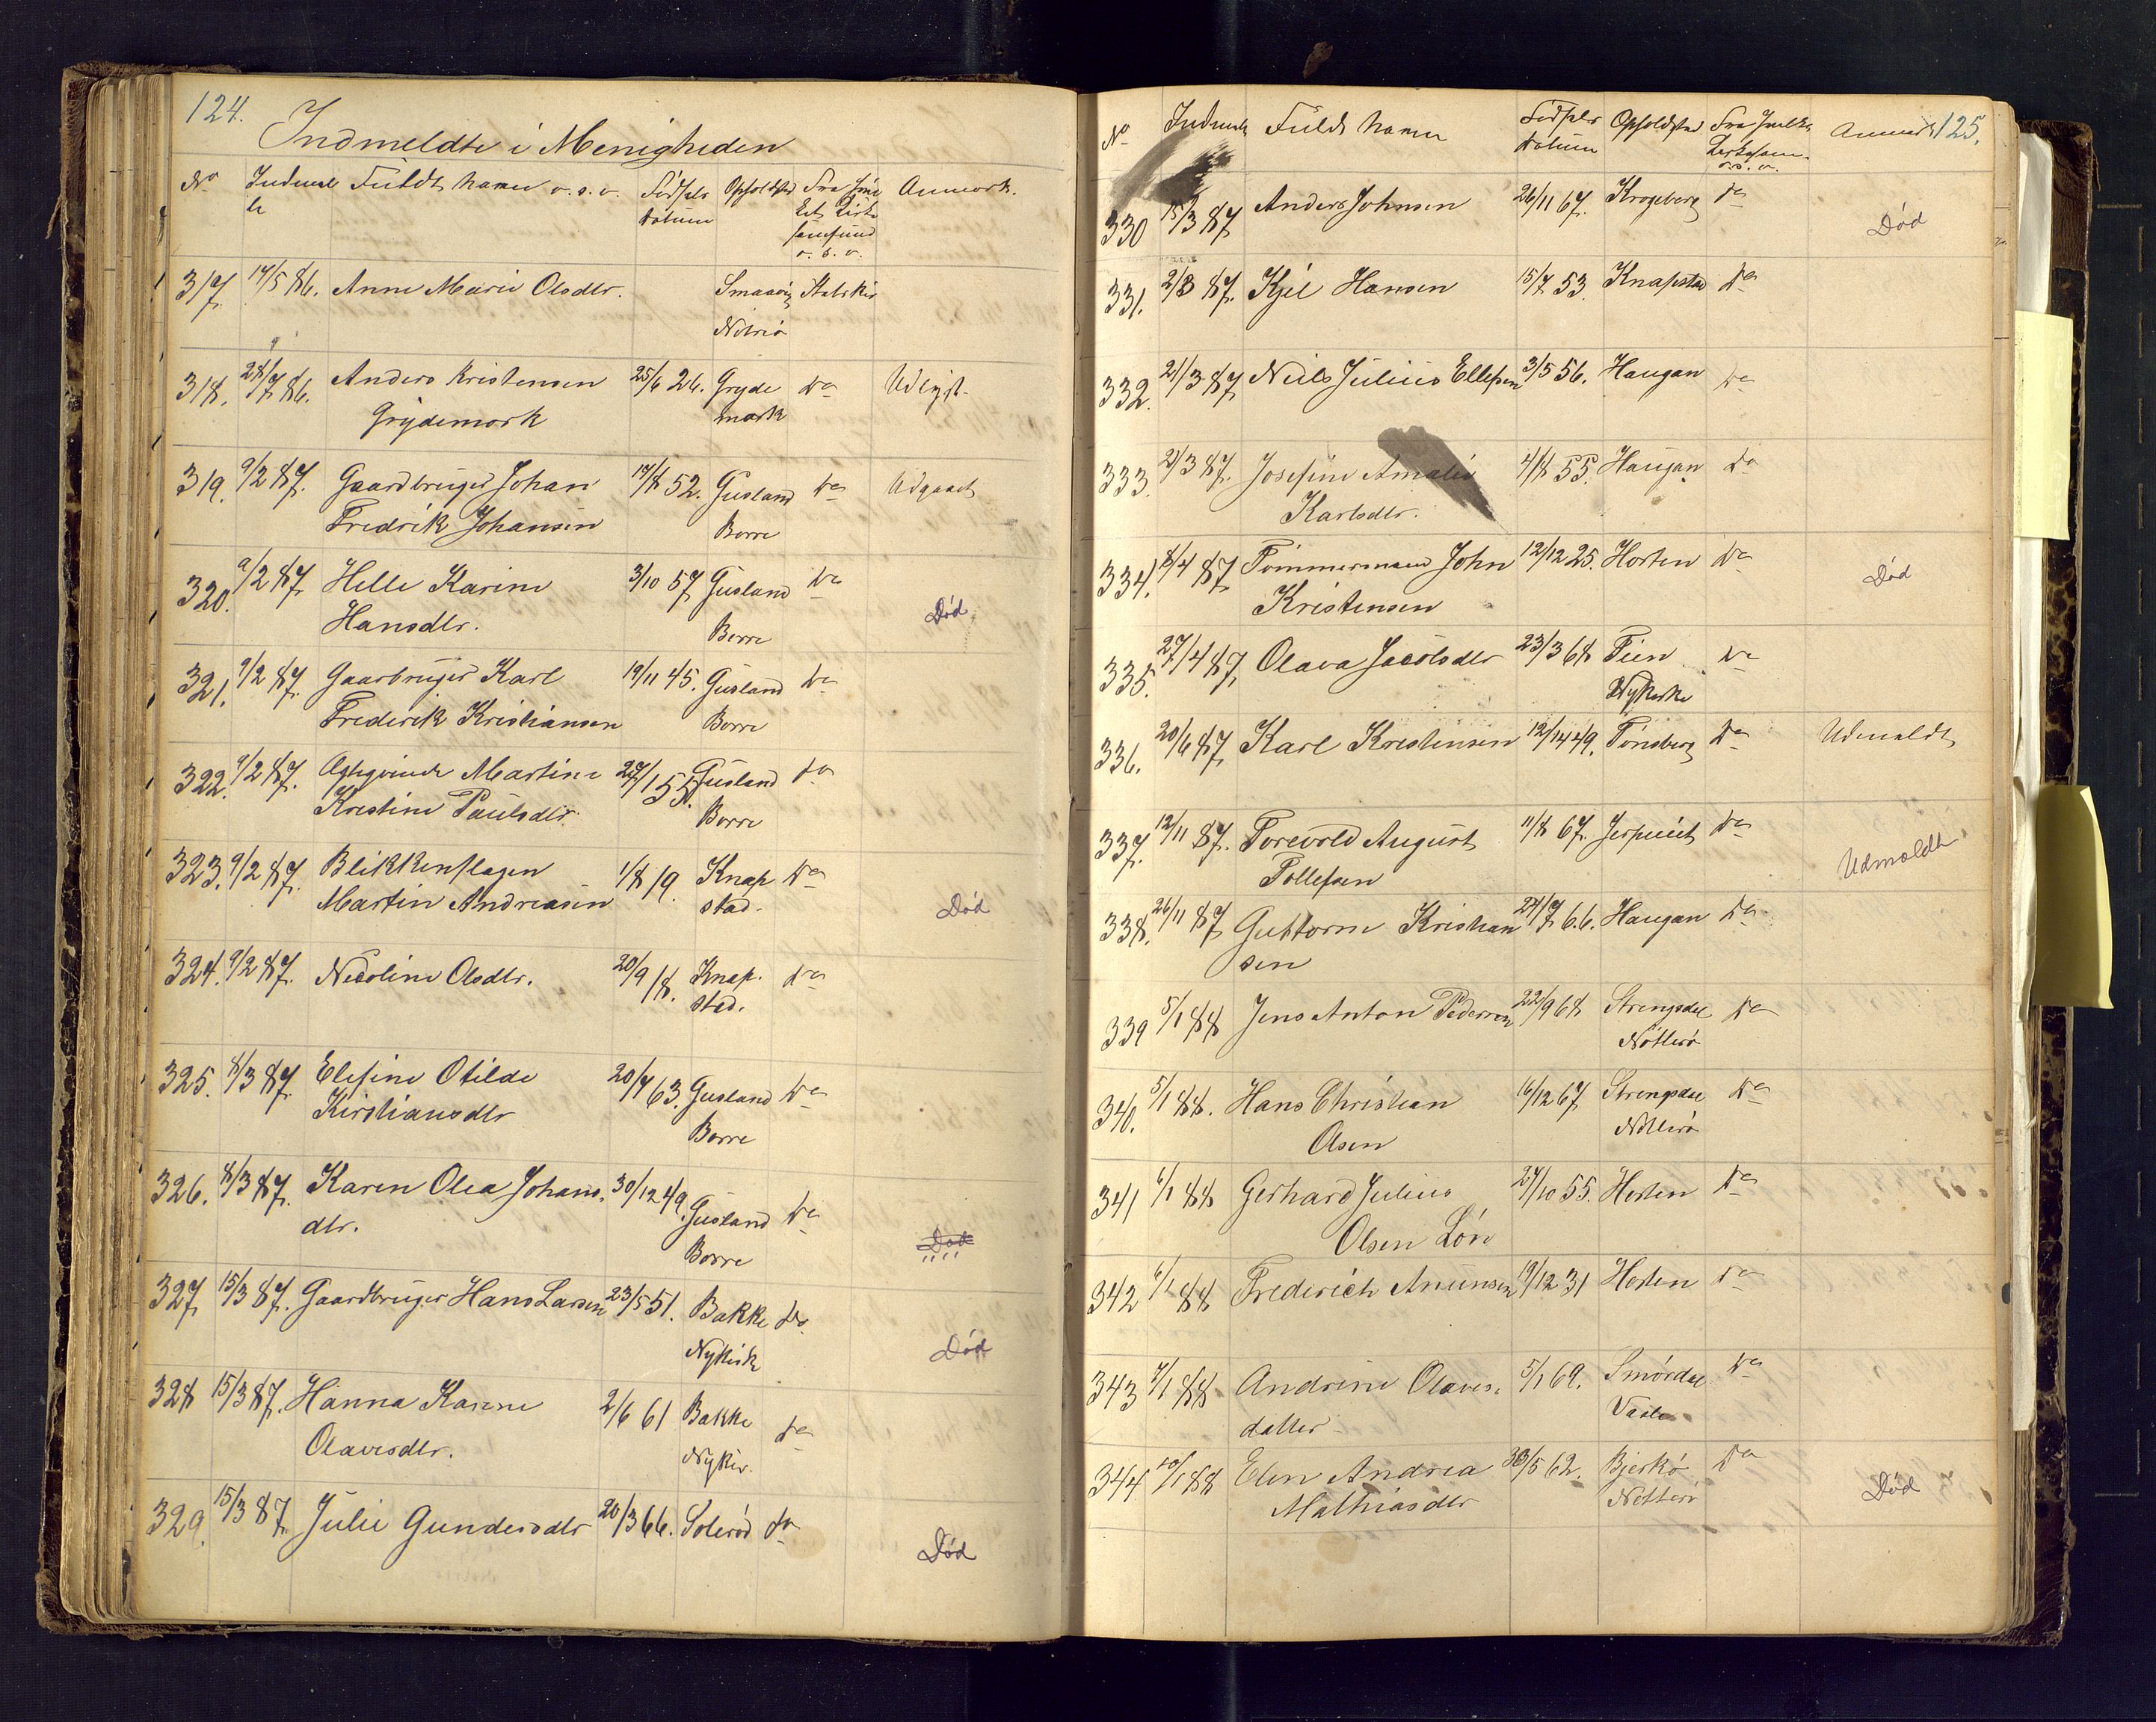 124.
Indmeldte i Menigheden
No Indmel Fuldt Navn o. s. v. Fødsels Opholdsted Fra Anmærk.
te Datum Kirke
samfund
o. s. v.
317. 14/5 86. Anne Marie Olsdtr. Smaavig Statskir
Nøtrø
318. 28/7 86. Anders Kristensen 25/6 26. Gryde Do Udlyst.
Grydemork mork
319. 9/2 87. Gaardbruger Johan 17/8 52. Gusland Do Udgaaet
Fredrik Johansen Borre
320. 9/2 87. Helle Karine 3/10 57 Gusland Do Død
Hansdtr. Borre
321. 9/2 87. Gaarbruger Karl 19/11 45. Gusland Do
Frederik Kristiansen Borre
322. 9/2 87. Martine Gusland Do
Kristine Paulsdtr. Borre
323. 9/2 87. Blikkenslagen 1/8 19. Knap Do
Martin Andreasen stad. Død
324. 9/2 87. Nicoline Olsdtr. 20/9 18. Knap. Do
stad.
325. 8/3 87. Elefine Otilde 20/4 63. Gusland Do
Kirstiansdtr Borre
326. 8/3 87. Karen Olea Johans. 30/12 49. Gusland Do
dtr. Borre Død
327 15/3 87. Gaardbruger Hans Larsen 23/5 51. Bakke Do.
Nykirk Død
328 15/3 87. Hanna Karine 2/6 61 Bakke Do
Olavesdtr. Nykir.
329. 15/3 87. Julie Gundersdtr 20/3 66. Solerød Do
Død
125.
No Indmelt Fuldt Navn Fødsels Opholdsted Fra Anmærk
Datum Kirkesam.
o. s. v.
330 15/3 87 Anders Johnsen 26/11 67. Krogeberg Do Død
331. 2/3 87. Kjel Hansen 15/7 53. Knapstad Do
332. 21/3 87 Niels Julius Ellefsen 3/5 56. Haugan Do
333. 21/3 87. Josefine Amalie 4/8 55. Haugan Do
Karlsdtr.
334. 8/4 87 Tømmermand John 12/12 25. Horten Do Død
Kristensen
335. 27/4 87, Olava Jacobsdtr 23/3 68 Fien Do
Nykirke
336. 20/6 87, Karl Kristensen 49. Tønsberg Do Udmeldt
337. 12/11 87. Torevold August 11/8 67. Do Udmeldt
Tollefsen
338. 26/11 87 Guttorm Kristian 24/7 66. Haugan Do
sen
339 5/1 88 Jens Anton Pedersen 22/9 68 Strengsdal Do
Nøtterø
340. 5/1 88. Hans Christian 16/12 67 Strengsdal Do
Olsen Nøtterø
341 6/1 88 Gerhard Julius 27/10 55. Horten Do
Olsen Løv
342 6/1 88 Frederich Anunsen 19/12 31 Horten Do
343 7/1 88 Andrine Olaves. 5/1 69. Smørdal Do
datter Vaale
344 88 Elen Andrea 30/5 62. Bjerkø Do Død
Mathiasdtr Nøtterø